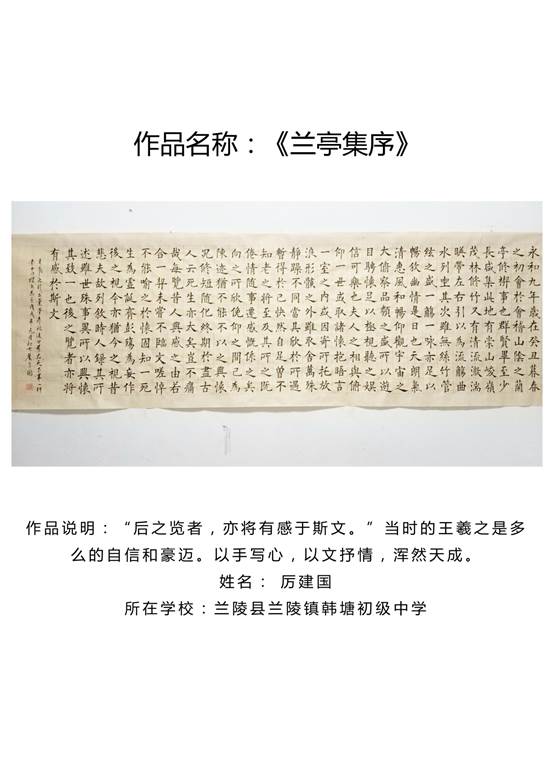 作品名称：《兰亭集序》
永和九年歲在癸丑暮春
之初會於會稽山陰之蘭
亭修禊事也群賢畢至少
長咸集此地有崇山峻嶺
茂林修竹又有清流激湍
暎帶左右引以為流觴曲
水列坐其次雖無絲竹管
絃之盛一觴一咏亦足以
暢敘幽情是日也天朗氣
清惠風和暢仰觀宇宙之
大俯察品類之盛所以遊
目騁懷足以極視聽之娛
信可樂也夫人之相與俯
仰一世或取諸懷抱晤言
一室之內或因寄所托放
浪形骸之外雖取舍萬殊
靜躁不同當其欣於所遇
暫得於己快然自足曾不
知老之將至及其所之既
倦情隨事遷感慨係之矣
向之所欣俛仰之間已為
陳迹猶不能不以之興懷
況修短隨化終期於盡古
人云死生亦大矣豈不痛
哉每覽昔人興感之由若
合一契未嘗不臨文嗟悼
不能喻之於懷固知一死
生為虛誕齊彭殤為妄作
後之視今亦猶今之視昔
悲夫故列敘時人錄其所
述雖世殊事異所以興懷
其致一也後之覽者亦將
有感於斯文
作品说明：“后之览者，亦将有感于斯文。”当时的王羲之是多
么的自信和豪迈。以手写心，以文抒情，浑然天成。
姓名： 厉建国
所在学校：兰陵县兰陵镇韩塘初级中学